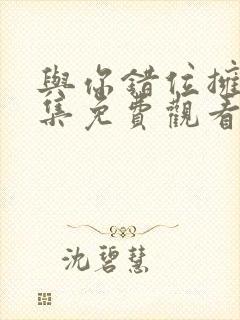 與你錯位擁
集免費觀看
沈碧慧